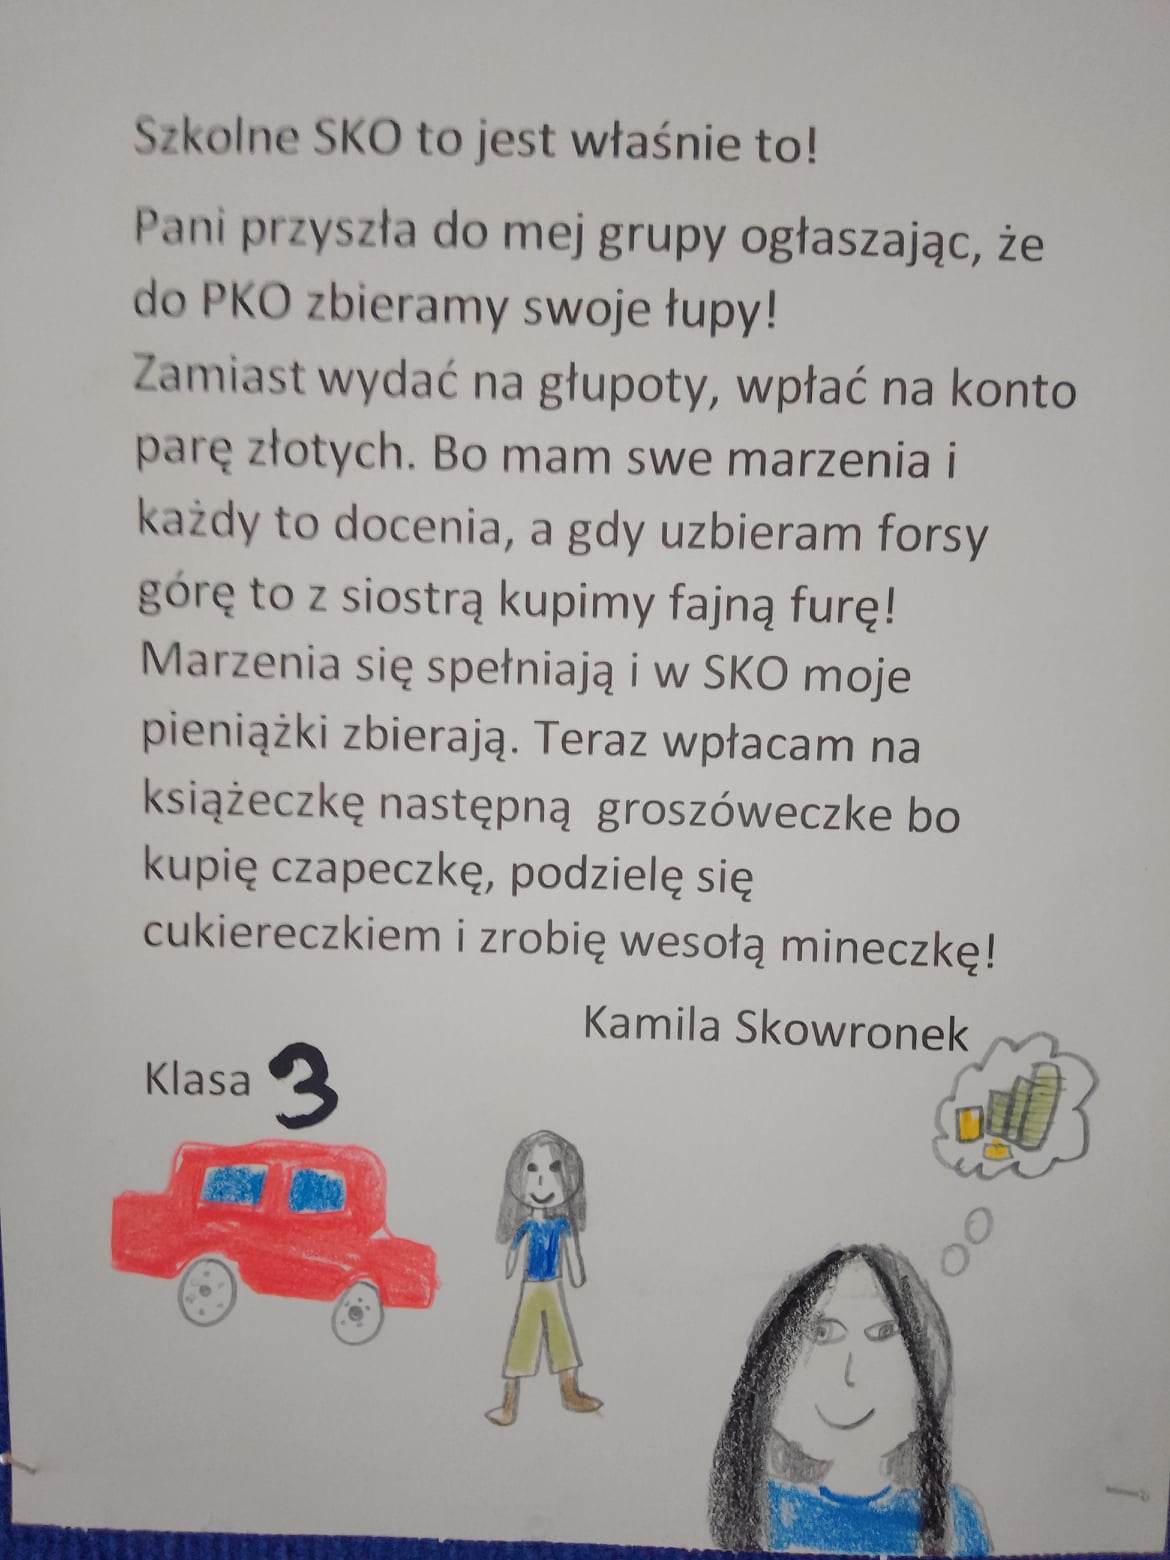 Szkolne SKO to jest właśnie to!
Pani przyszła do mej grupy ogłaszając, że
do PKO zbieramy swoje łupy!
Zamiast wydać na głupoty, wpłać na konto
parę złotych. Bo mam swe marzenia i
każdy to docenia, a gdy uzbieram forsy
górę to z siostrą kupimy fajną furę!
Marzenia się spełniają i w SKO moje
pieniążki zbierają. Teraz wpłacam na
książeczkę następną groszóweczke bo
kupię czapeczkę, podzielę się
cukiereczkiem i zrobię wesołą mineczkę!
Kamila Skowronek
Klasa 3